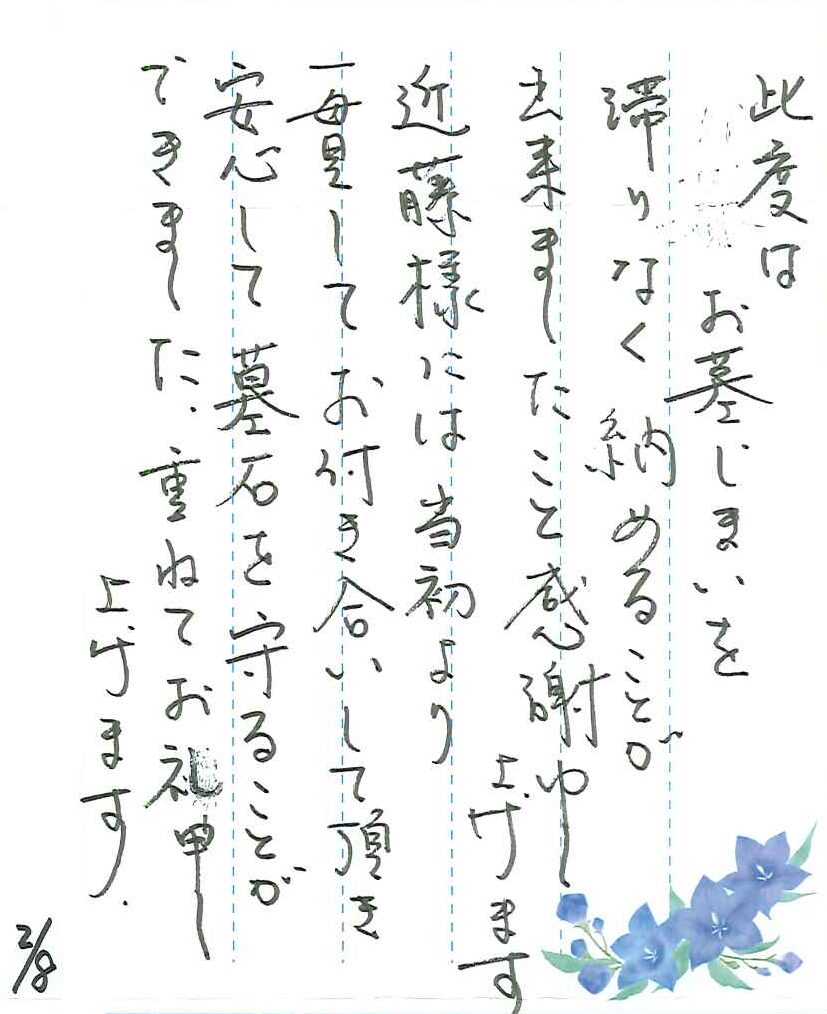 此度は お墓じまいを
滞りなく納めることが
出来ましたこと感謝申し上げます
近藤様には当初より
一貫してお付き合いして頂き
安心して墓石を守ることが
できました.重ねてお礼申し
上げます.
2/8